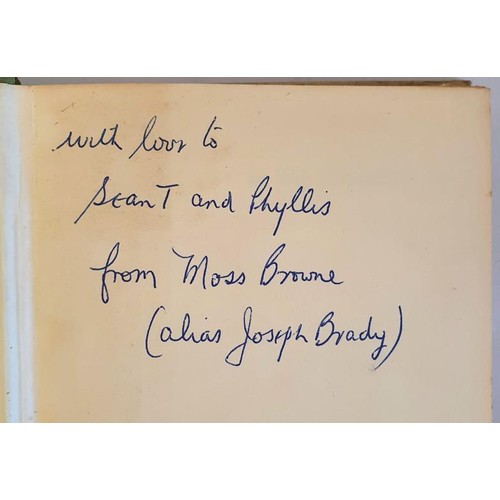 with love to
Sean T and Phyllis
from Moss Browne
(alias Joseph Brady)